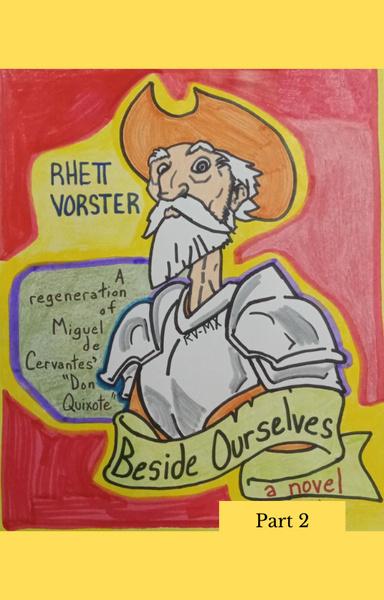 RHETT
VORSTER
A
regeneration
of
Miguel
de
Cervantes'
"Don
Quixote"
RV-MX
Beside Ourselves
a novel
Part 2